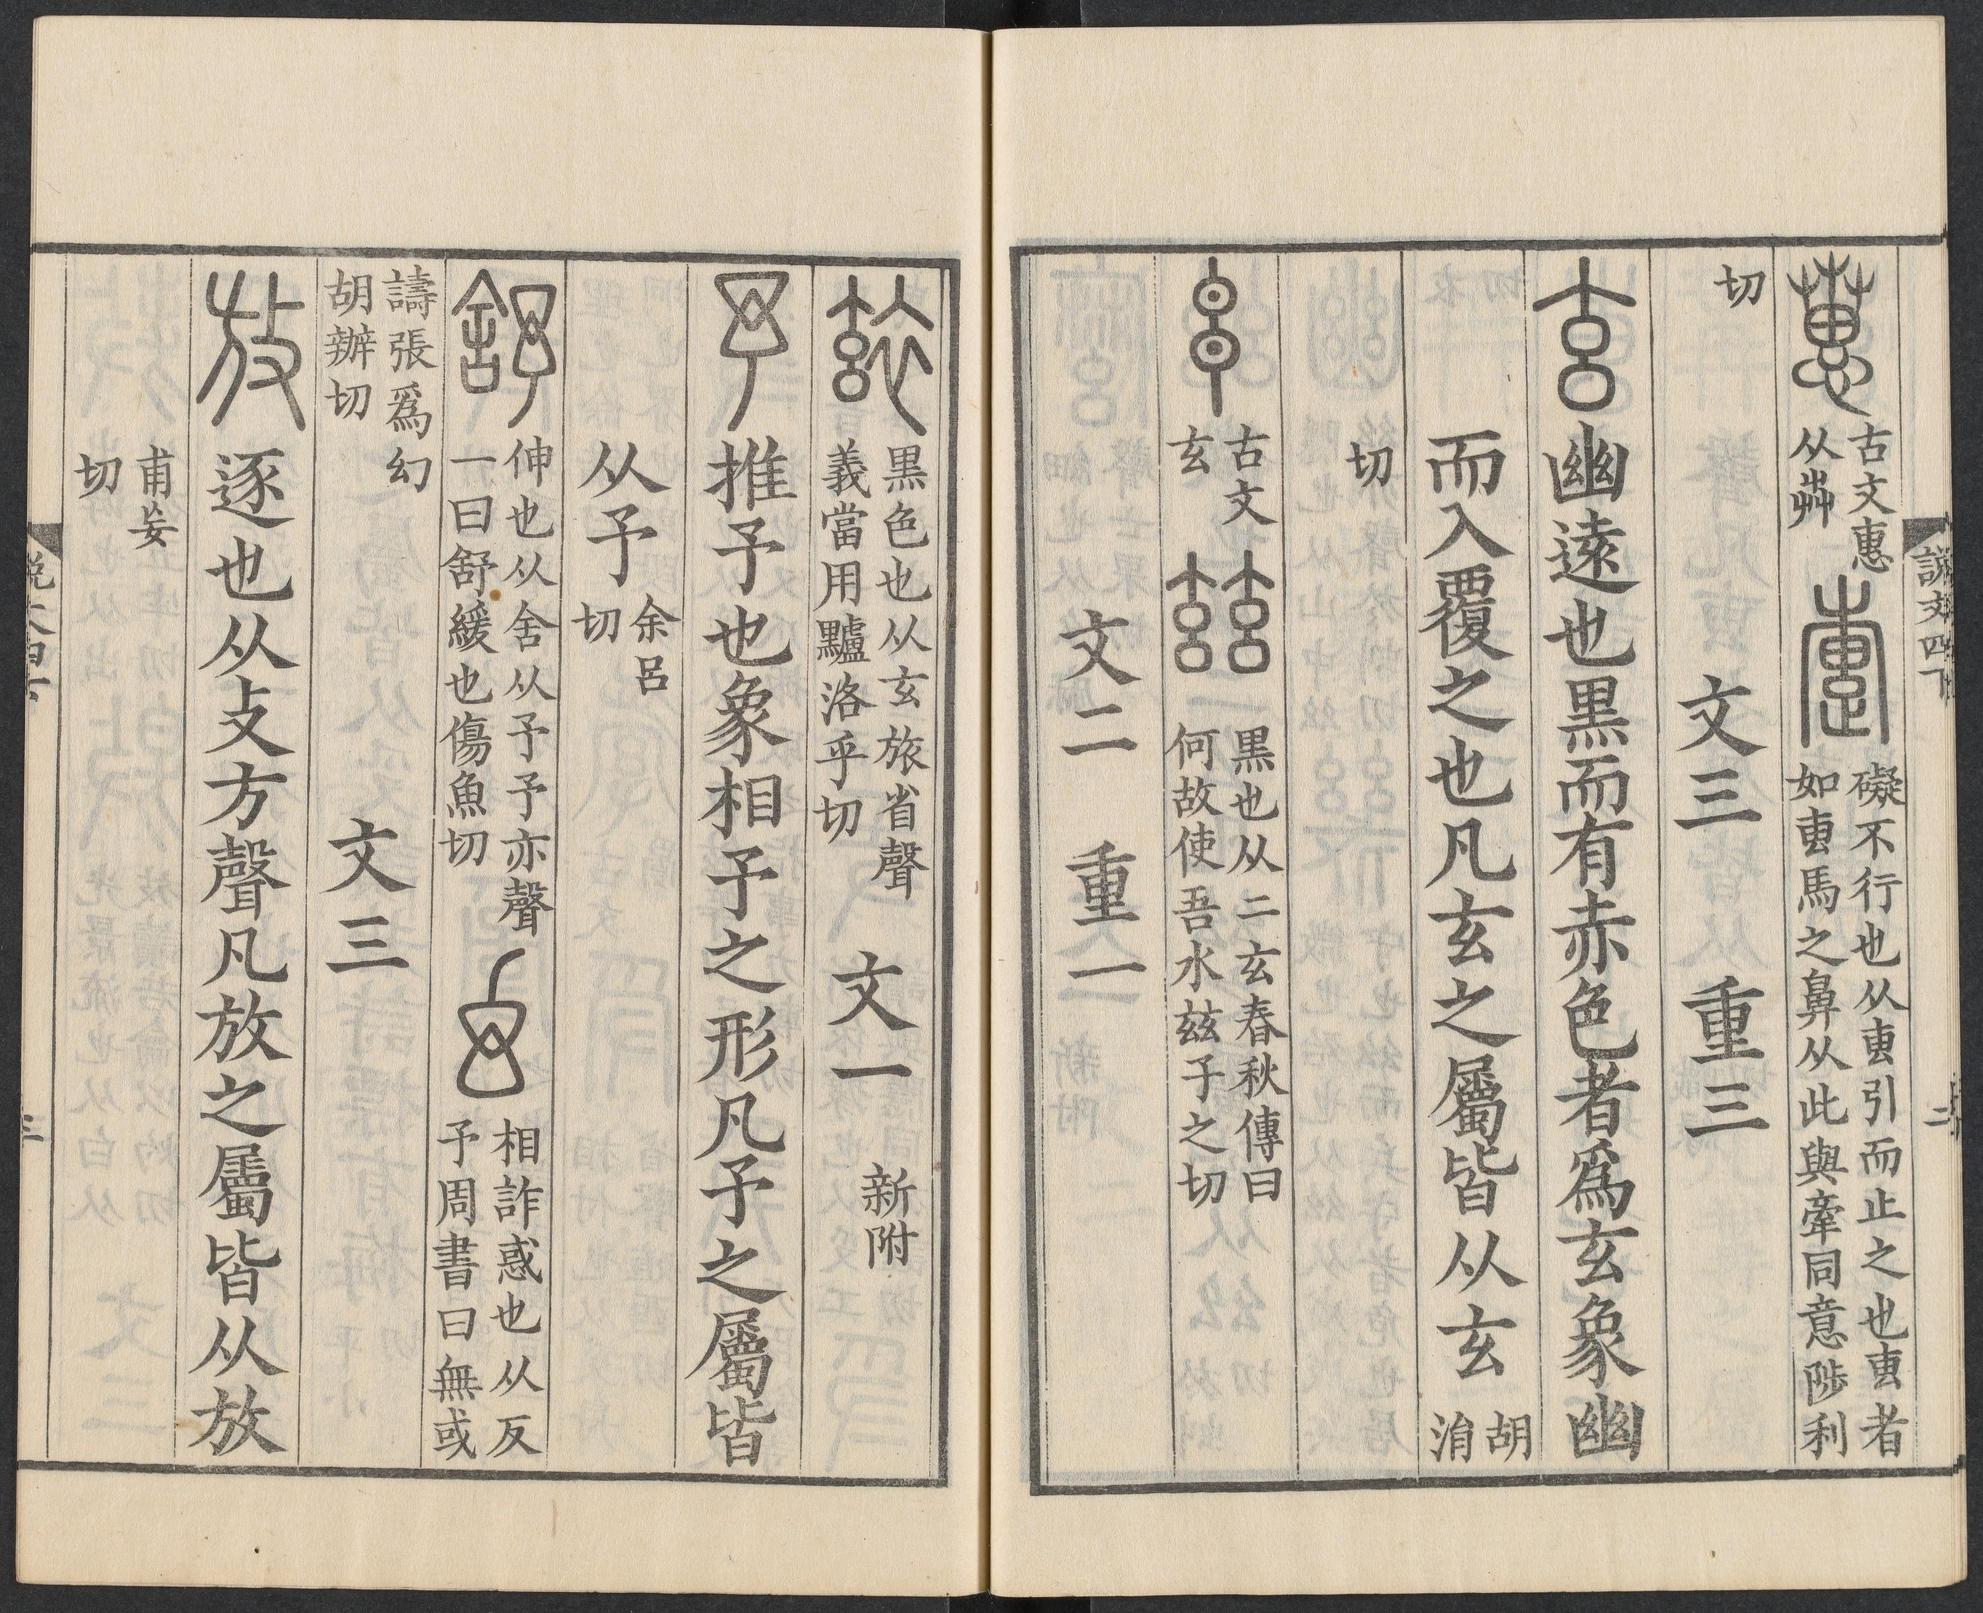 古文惠
从芔
礙不行也从叀引而止之也叀者
如叀馬之鼻从此與牽同意陟利
切
文三 重三
玄 幽遠也黒而有赤色者爲玄象幽
而入覆之也凡玄之屬皆从玄 胡
涓
切
古文
玄
玆 黒也从二玄春秋傳曰
何故使吾水玆子之切
文二 重一
説文四下
二
黸 黒色也从玄旅省聲
義當用黸洛乎切
文一 新附
予 推予也象相予之形凡予之屬皆
从予 余呂
切
舒 伸也从舍从予予亦聲
一曰舒緩也傷魚切
幻 相詐惑也从反
予周書曰無或
譸張爲幻
胡辦切
文三
放 逐也从攴方聲凡放之屬皆从放
甫妄
切
三